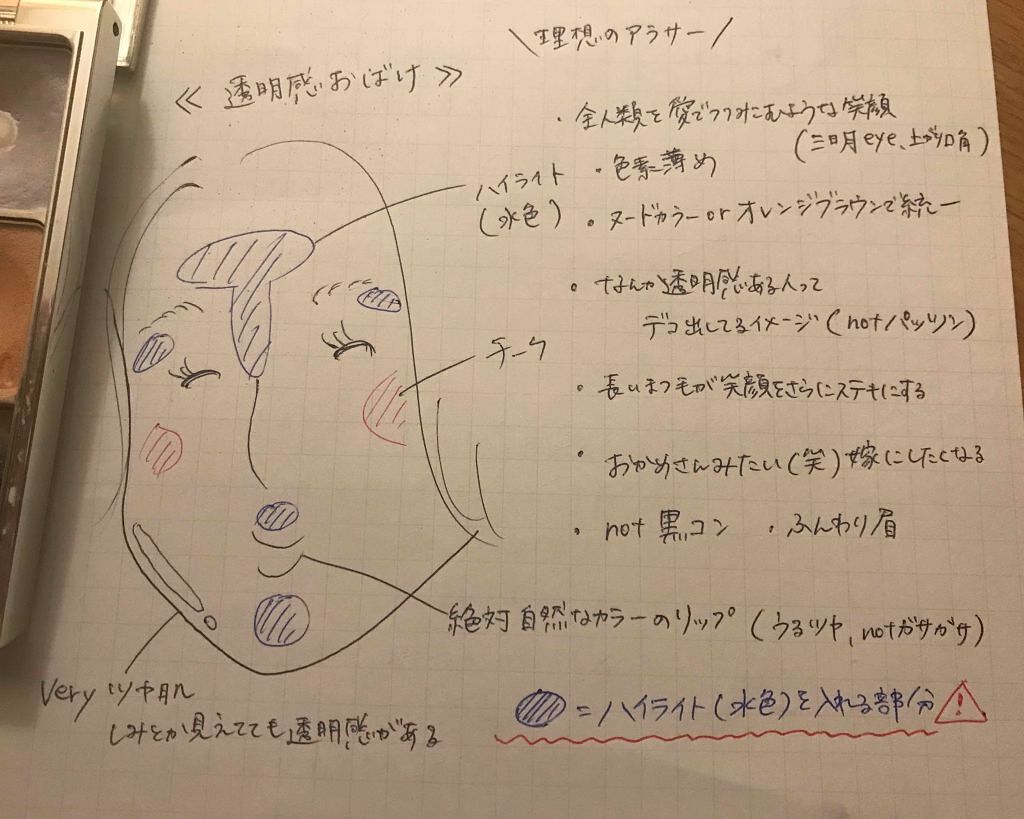 \理想のアラサー/
≪ 透明感おばけ ≫
・全人類を愛でつつみこむような笑顔
(三日月eye、上がり口角)
ハイライト
(水色)
・色素薄め
・ヌードカラーorオレンジブラウンで統一
・なんか透明感ある人って
デコ出してるイメージ(notパッツン)
チーク
・長いまつ毛が笑顔をさらにステキにする
・おかめさんみたい(笑)嫁にしたくなる
・not黒コン ・ふんわり眉
絶対自然なカラーのリップ(うるツヤ,notガサガサ)
Veryツヤ肌
しみとか見えてても透明感がある
=ハイライト(水色)を入れる部分 !